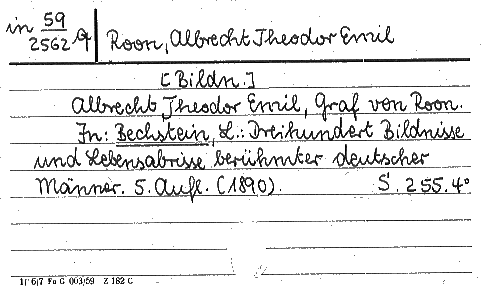 in 59/2562 4
Roon, Albrecht Theodor Emil
[Bildn.]
Albrecht Theodor Emil, Graf von Roon.
In: Bechstein, L.: Dreihundert Bildnisse
und Lebensabrisse berühmter deutscher
Männer. 5. Aufl. (1890). S. 255. 4°
Fu G 003/59 Z 182 C